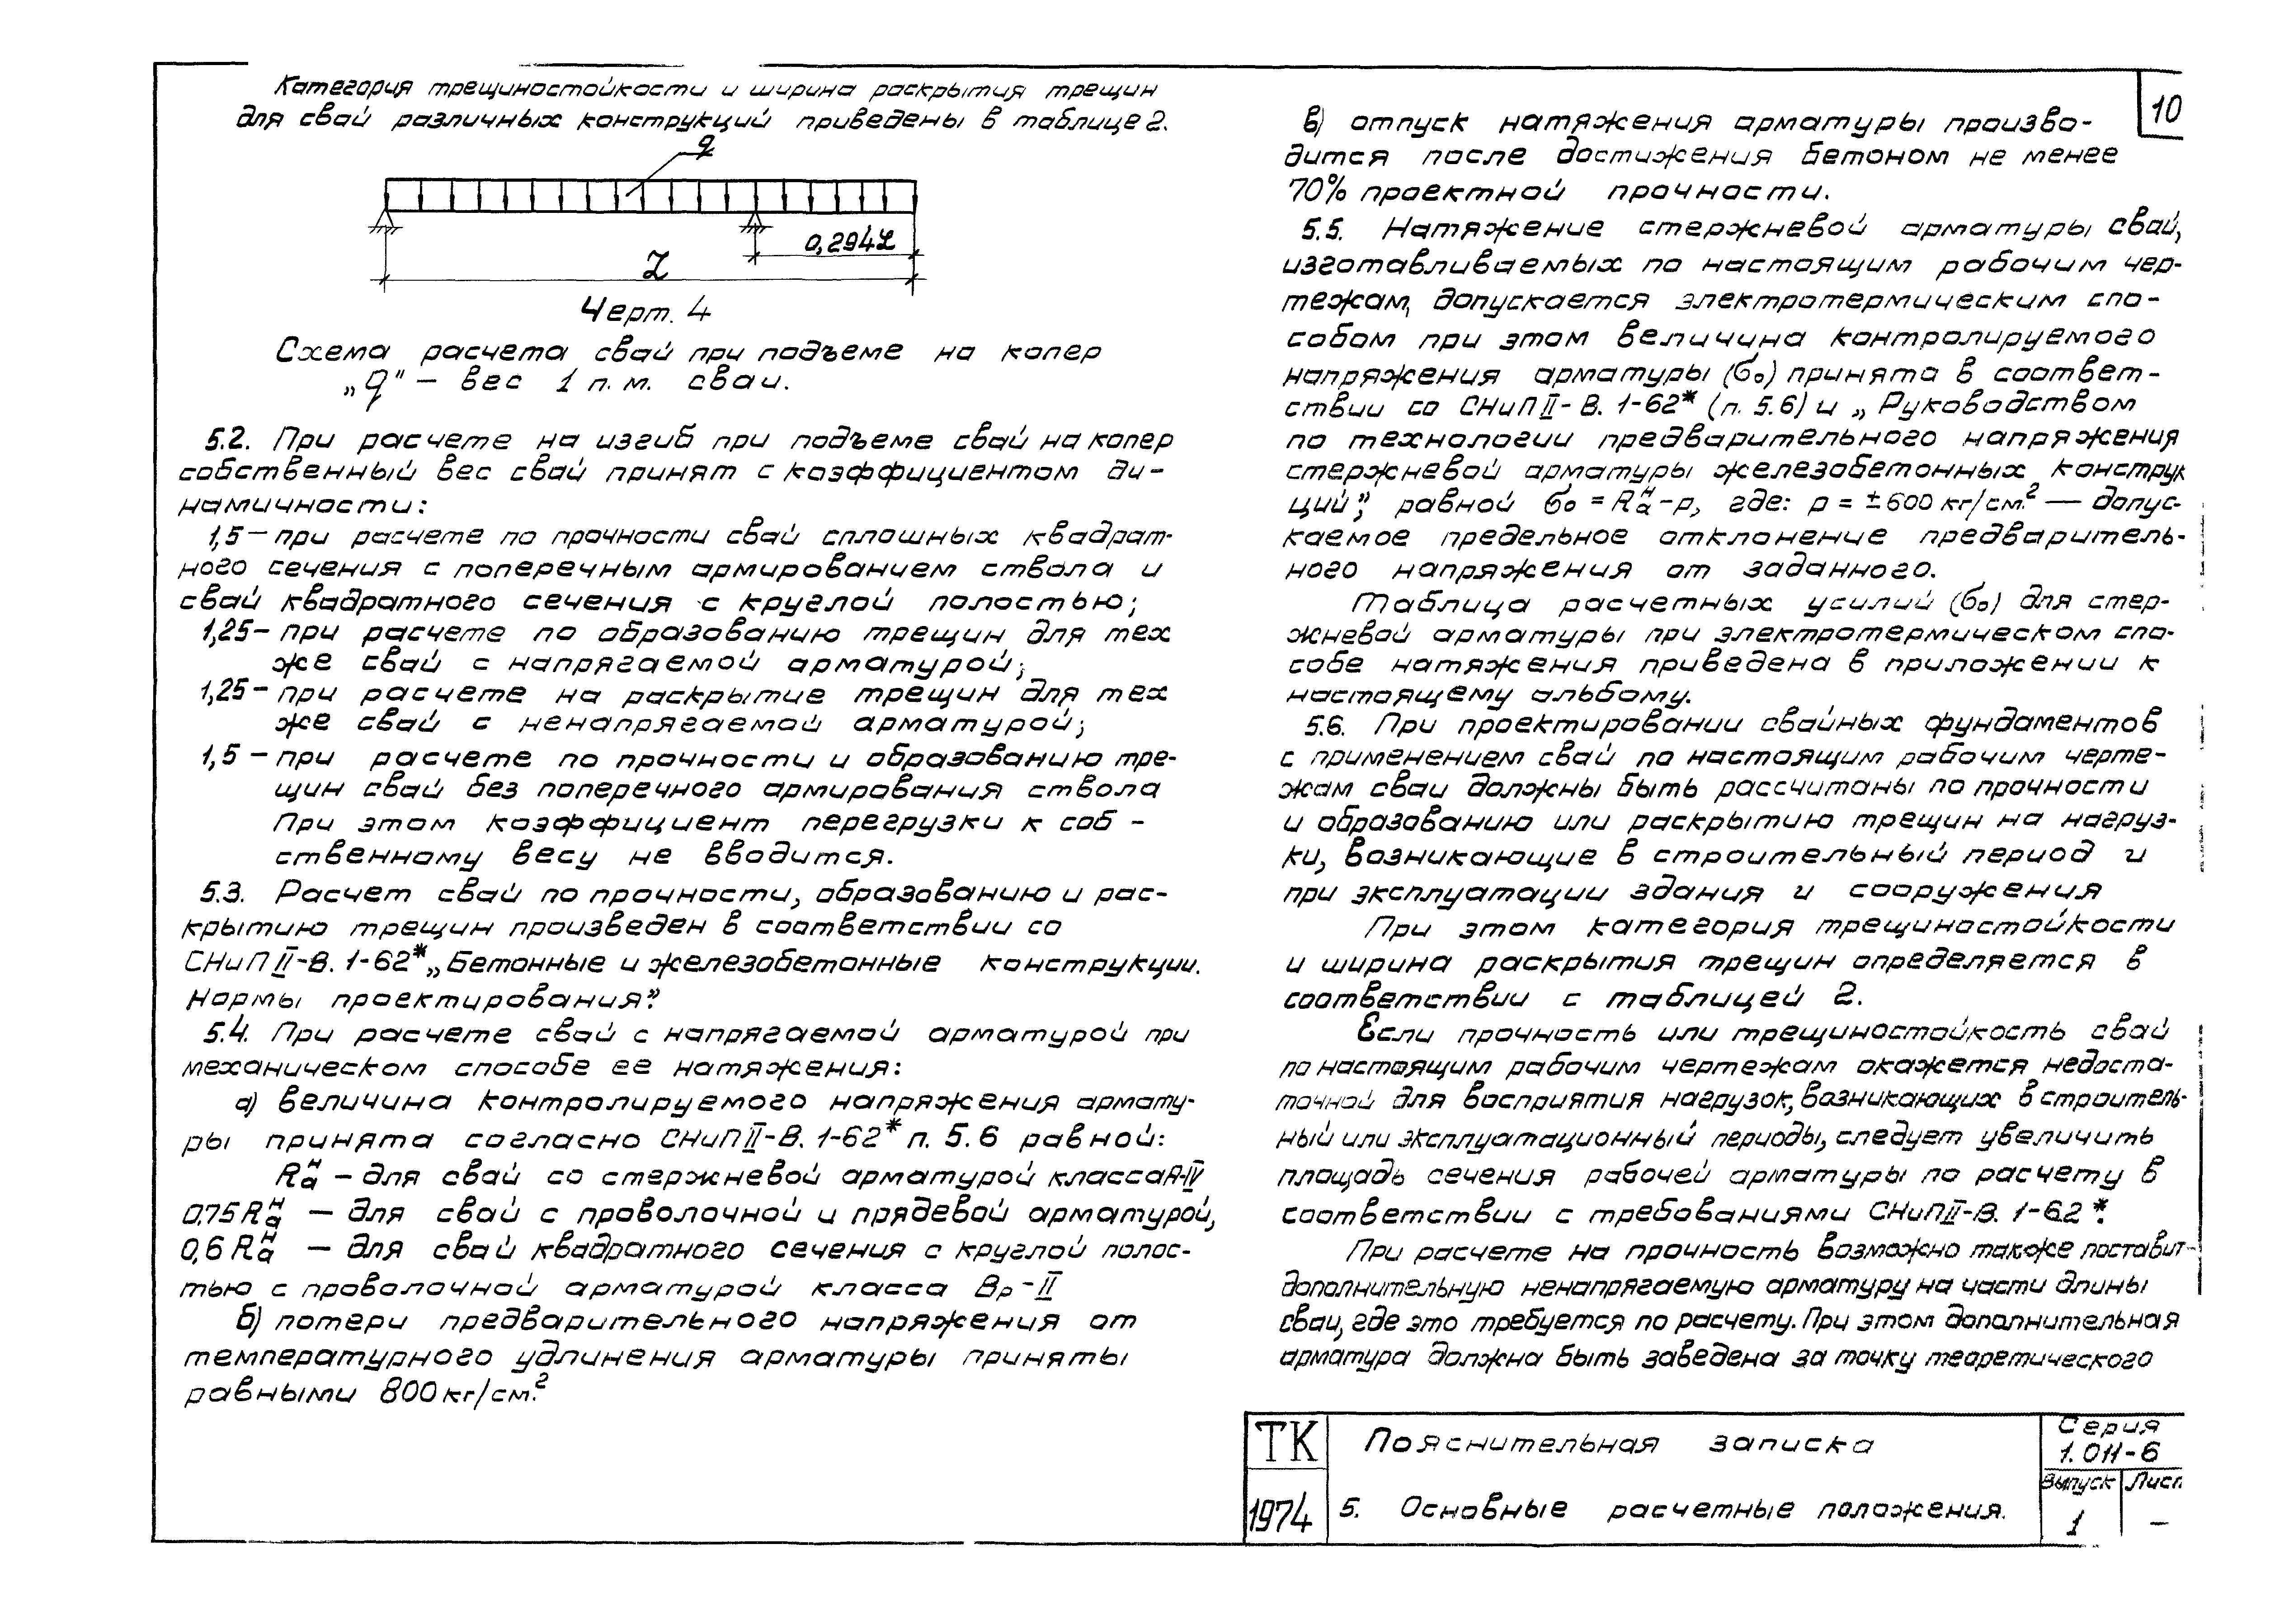 Категория трещиностойкости и ширина раскрытия трещин
для свай различных конструкций приведены в таблице 2.
q
0,294L
L
Черт. 4
Схема расчета свай при подъеме на копер
„q" – вес 1 п.м. сваи.
5.2. При расчете на изгиб при подъеме свай на копер
собственный вес свай принят с коэффициентом ди-
намичности:
1,5 – при расчете по прочности свай сплошных квадрат-
ного сечения с поперечным армированием ствола и
свай квадратного сечения с круглой полостью;
1,25 – при расчете по образованию трещин для тех
же свай с напрягаемой арматурой;
1,25 – при расчете на раскрытие трещин для тех
же свай с ненапрягаемой арматурой;
1,5 – при расчете по прочности и образованию тре-
щин свай без поперечного армирования ствола
При этом коэффициент перегрузки к соб-
ственному весу не вводится.
5.3. Расчет свай по прочности, образованию и рас-
крытию трещин произведен в соответствии со
СНиП II-В. 1-62* „Бетонные и железобетонные конструкции.
Нормы проектирования".
5.4. При расчете свай с напрягаемой арматурой при
механическом способе ее натяжения:
а) величина контролируемого напряжения армату-
ры принята согласно СНиП II-В. 1-62* п. 5.6 равной:
Rₐᴴ – для свай со стержневой арматурой класса А-IV
0,75 Rₐᴴ – для свай с проволочной и прядевой арматурой,
0,6 Rₐᴴ – для свай квадратного сечения с круглой полос-
тью с проволочной арматурой класса Вр-II
б) потери предварительного напряжения от
температурного удлинения арматуры приняты
равными 800 кг/см.²
10
в) отпуск натяжения арматуры произво-
дится после достижения бетоном не менее
70% проектной прочности.
5.5. Натяжение стержневой арматуры свай,
изготавливаемых по настоящим рабочим чер-
тежам, допускается электротермическим спо-
собом при этом величина контролируемого
напряжения арматуры (σ₀) принята в соответ-
ствии со СНиП II-В. 1-62* (п. 5.6) и „Руководством
по технологии предварительного напряжения
стержневой арматуры железобетонных конструк
ций", равной σ₀ = Rₐᴴ-р, где: р = ±600 кг/см.² — допус-
каемое предельное отклонение предваритель-
ного напряжения от заданного.
Таблица расчетных усилий (σ₀) для стер-
жневой арматуры при электротермическом спо-
собе натяжения приведена в приложении к
настоящему альбому.
5.6. При проектировании свайных фундаментов
с применением свай по настоящим рабочим черте-
жам сваи должны быть рассчитаны по прочности
и образованию или раскрытию трещин на нагруз-
ки, возникающие в строительный период и
при эксплуатации здания и сооружения
При этом категория трещиностойкости
и ширина раскрытия трещин определяется в
соответствии с таблицей 2.
Если прочность или трещиностойкость свай
по настоящим рабочим чертежам окажется недоста-
точной для восприятия нагрузок, возникающих в строитель-
ный или эксплуатационный периоды, следует увеличить
площадь сечения рабочей арматуры по расчету в
соответствии с требованиями СНиП II-В. 1-62*.
При расчете на прочность возможно также поставит-
дополнительную ненапрягаемую арматуру на части длины
сваи, где это требуется по расчету. При этом дополнительная
арматура должна быть заведена за точку теоретического
ТК
1974
Пояснительная записка
5. Основные расчетные положения.
Серия
1.011-6
Выпуск Лист
1 –